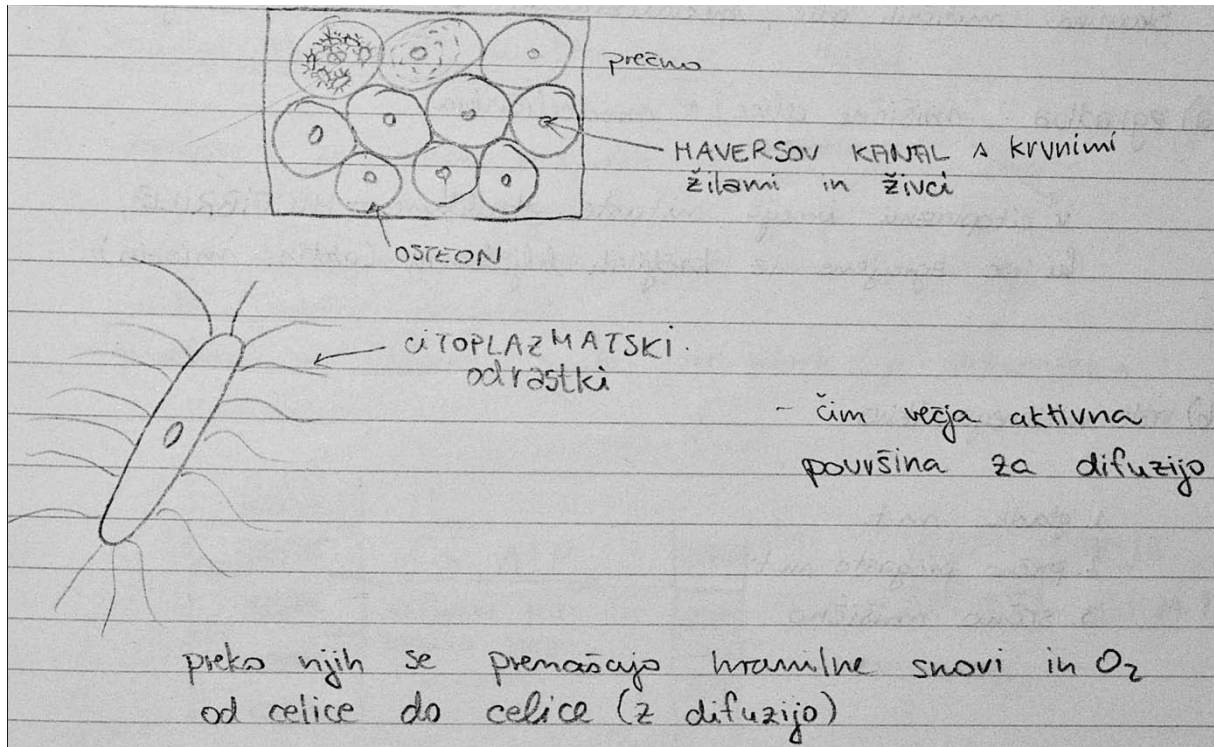 prečno
HAVERSOV KANAL s krvnimi
žilami in živci
OSTEON
CITOPLAZMATSKI
odrastki
- čim večja aktivna
površina za difuzijo
preko njih se prenašajo hranilne snovi in O₂
od celice do celice (z difuzijo)